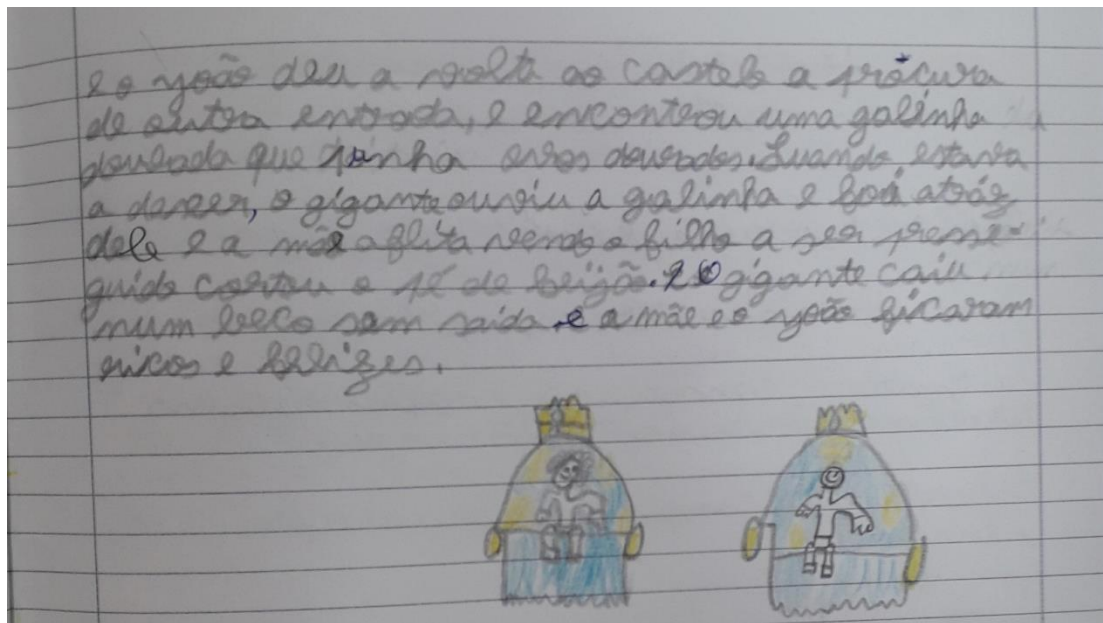 e o João deu a volta ao castelo a prócura
de outra entrada, e encontrou uma galinha
dourada que punha ovos dourados. Quando estava
a descer, o gigante ouviu a galinha e foi atrás
dele e a mãe aflita vendo o filho a ser presse-
guido cortou o pé de feijão. e o gigante caiu
num beco sem saída e a mãe e o João ficaram
ricos e felizes.